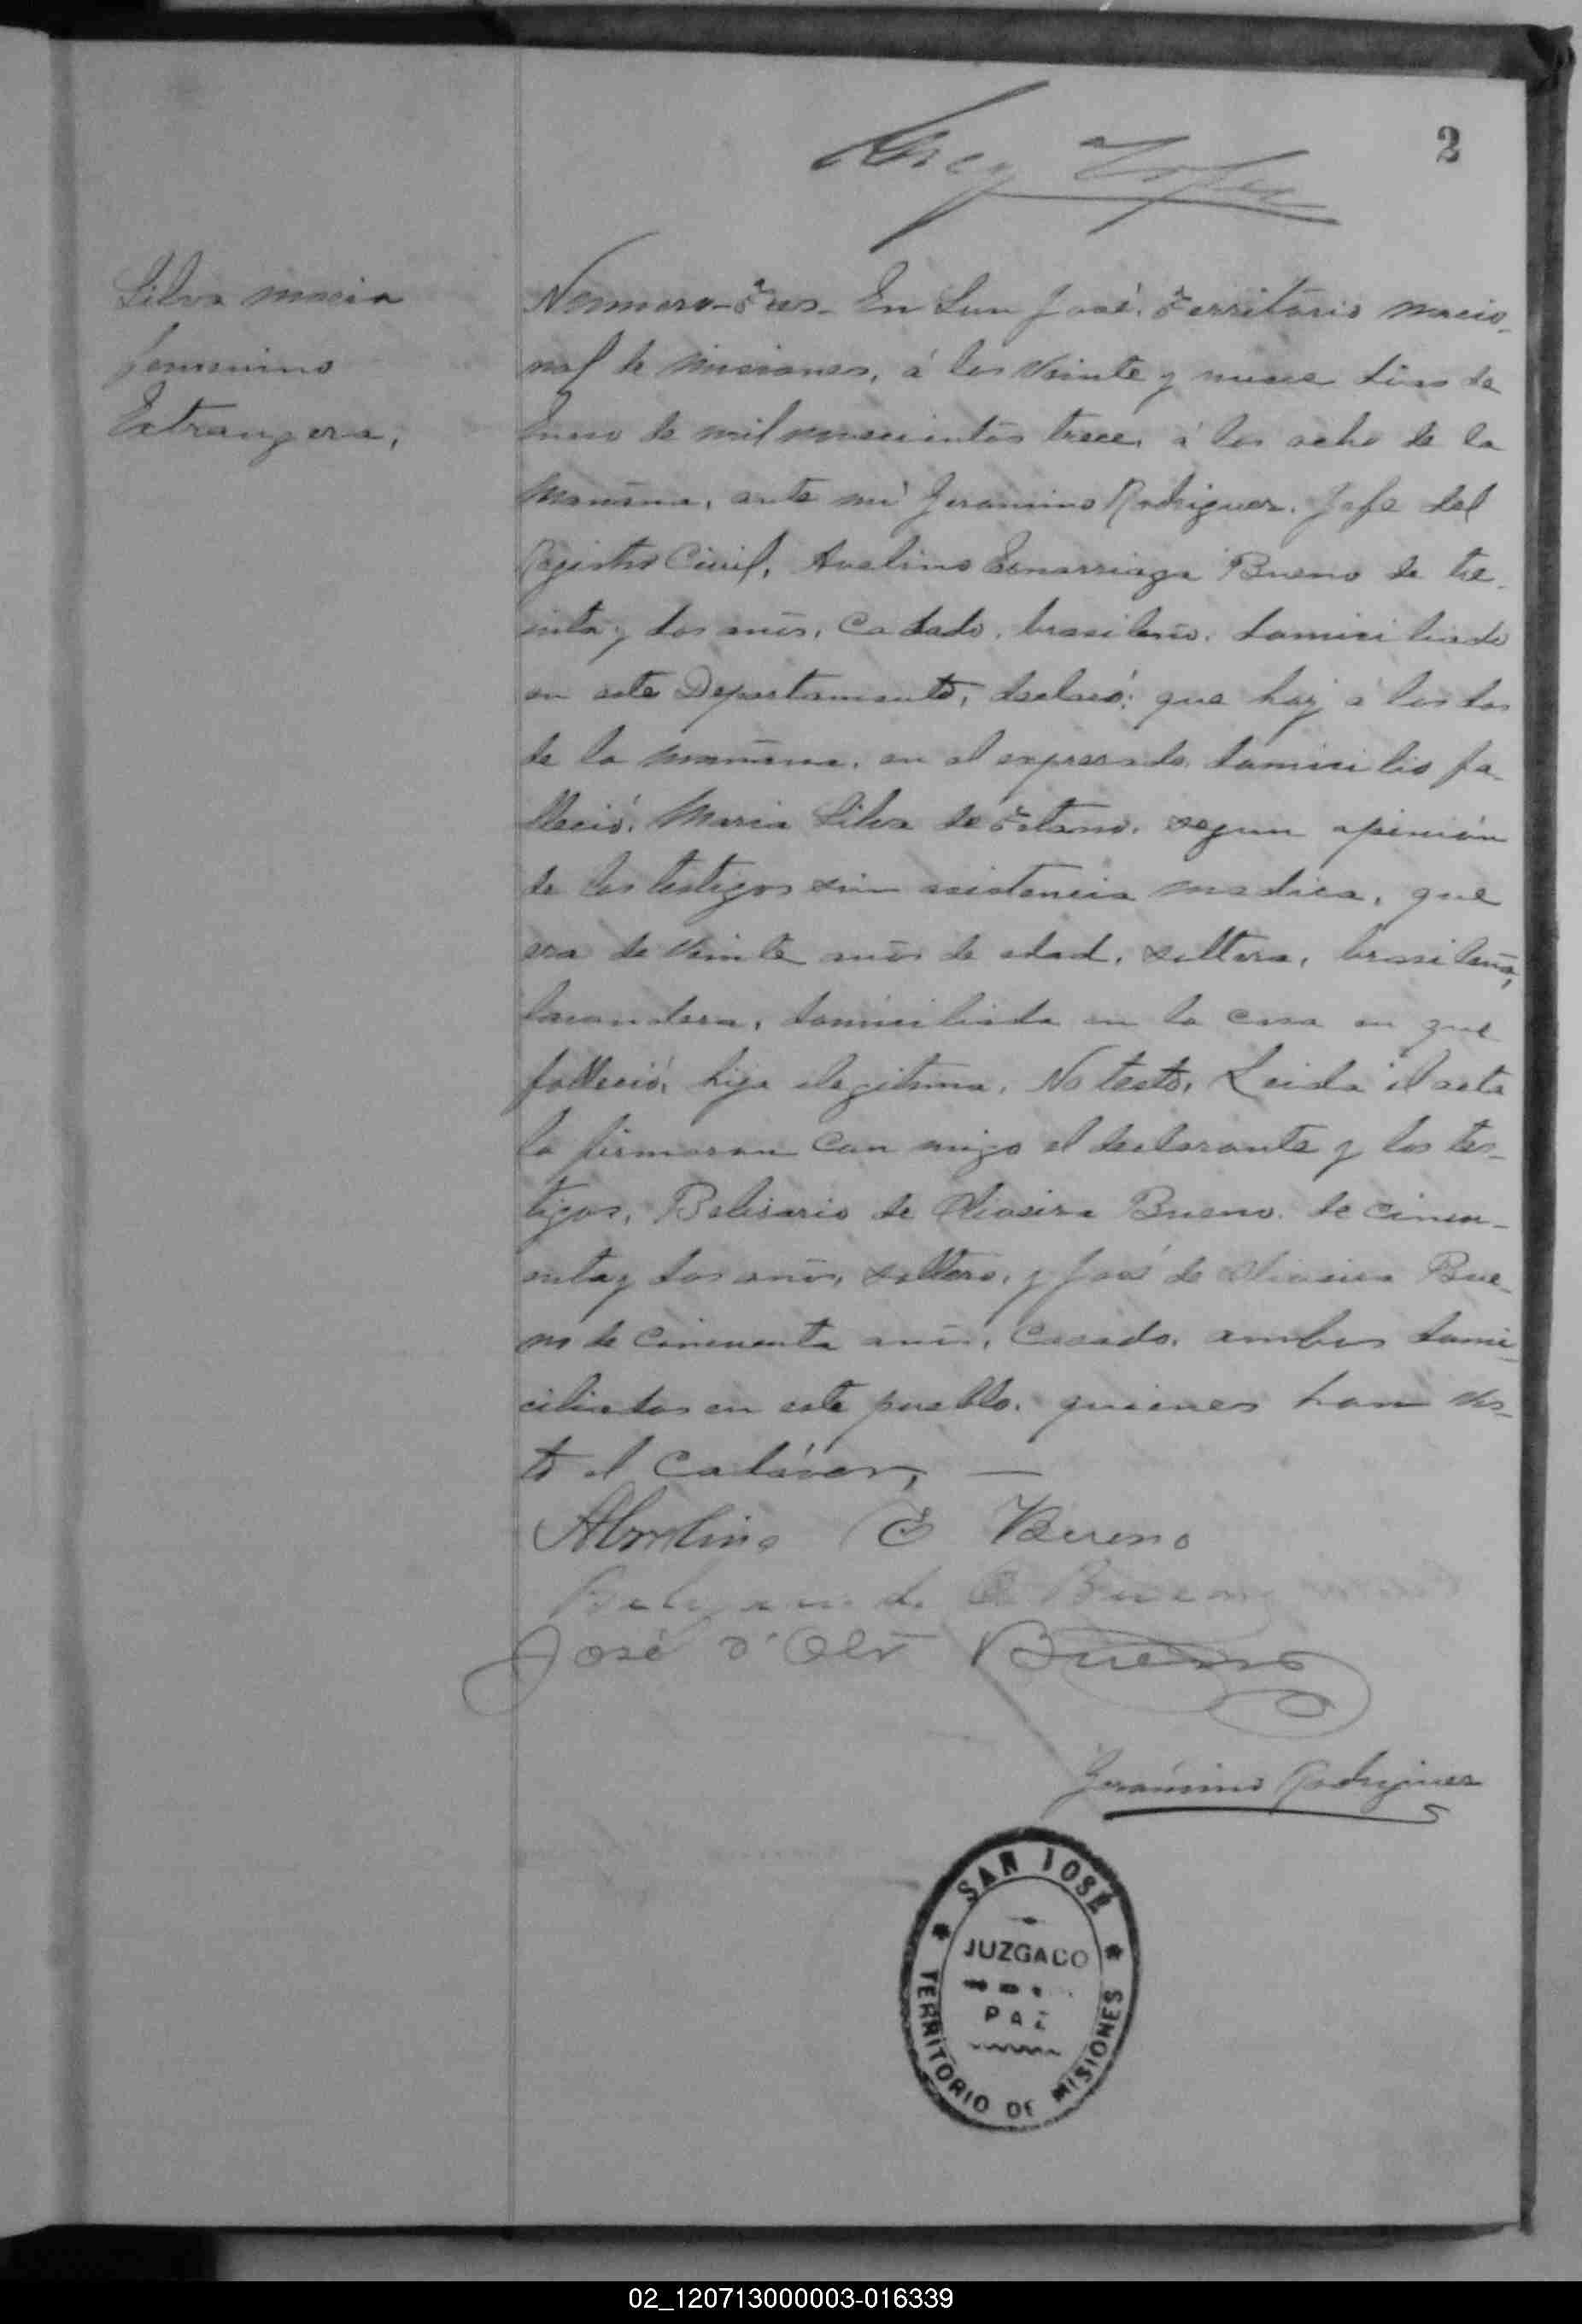 2
Silva Maria
femenino
Estrangera,
Nummero-Tres- En San José, Territorio nacio-
nal de Misiones, á los veinte y nueve dias de
Enero de mil novecientos trece, á las ocho de la
Mañana, ante mi Jeronimo Rodriguez, Jefe del
Registro Civil, Avelino Bueno de tre-
inta y dos anõs, Casado, brasilero, domiciliado
en este Departamento, declaró: que hoy á las dos
de la mañana, en el expresado domicilio fa-
lleció, Maria Silva de Tetano, segun opinión
de los testigos sin asistencia medica, que
era de veinte anõs de edad, soltera, brasilena,
lavandera, domiciliada en la casa en que
falleció, hija ilegitima, No testó, Leida el acta
la firmaron con migo el declarante y los tes-
tigos, Belisario de Oliveira Bueno, de cincu-
enta y dos anõs, soltero, y José de Oliveira Bue-
no de Cincuenta anõs, Casado, ambos domi-
ciliados en este pueblo, quienes han vis-
to el Cadáver, —
Abvelino E Bueno
de O Bueno
José d'Olv Bueno
Jerónimo Rodriguez
SAN JOSÉ
JUZGADO
DE
PAZ
TERRITORIO DE MISIONES
02_120713000003-016339